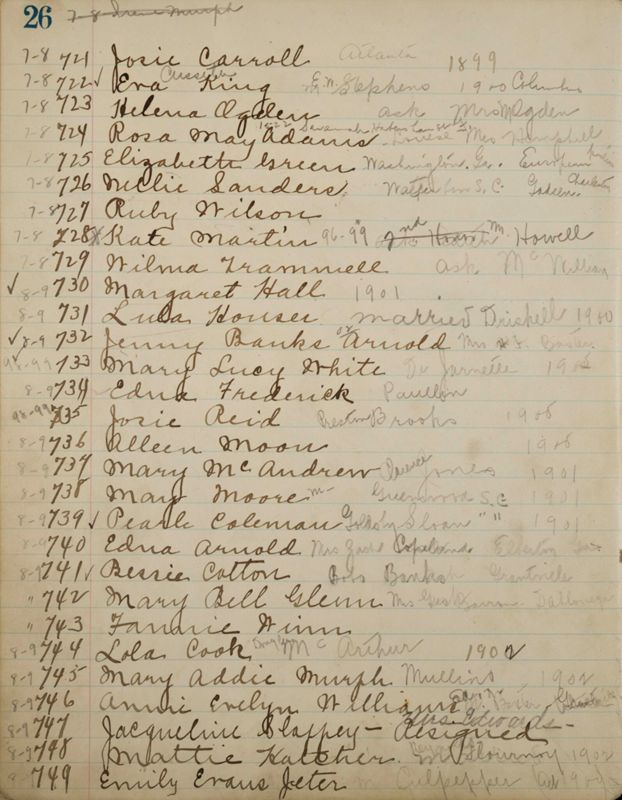 26 7-8 Irene Murph
7-8 721 Josie Carroll Atlanta 1899
7-8 722 Eva King Stephens 1900 Columbus
7-8 723 Helena Ogden ask Mrs Ogden
7-8 724 Rosa May Adams Savannah Mrs
7-8 725 Elizabeth Green Washington, Ga. European
7-8 726 Nellie Sanders S.C. Charleston
7-8 727 Ruby Wilson
7-8 728 Kate Martin 96-99 2nd M. Howell
7-8 729 Wilma Trammell ask Mc William
✓ 8-9 730 Margaret Hall 1901
8-9 731 Lula Houser married Driskell 1900
✓ 8-9 732 Jenny Banks Arnold Mrs
98-99 733 Mary Lucy White De Jarnette
8-9 734 Edna Frederick Paullin
98-99 735 Josie Reid Preston Brooks
8-9 736 Alleen Moon
8-9 737 Mary McAndrew Jones 1901
8-9 738 Mary Moore m- Greenwood S.C 1901
8-9 739 ✓ Pearle Coleman Sloan " " 1901
8-9 740 Edna Arnold Mrs Zach Copeland Elberton Ga.
8-9 741 ✓ Bessie Cotton Banks Grantville
" 742 Mary Bell Glenn Mrs Dahlonega
" 743 Fannie Winn
8-9 744 Lola Cook Mc Arthur 1902
8-9 745 Mary Addie Murph Mullins 1902
8-9 746 Annie Evelyn Williams
8-9 747 Jacqueline Slappey - Resigned Mrs. Edwards -
8-9 748 Mattie Hatcher Flournoy 1902
8-9 749 Emily Evans Jeter m Culpepper